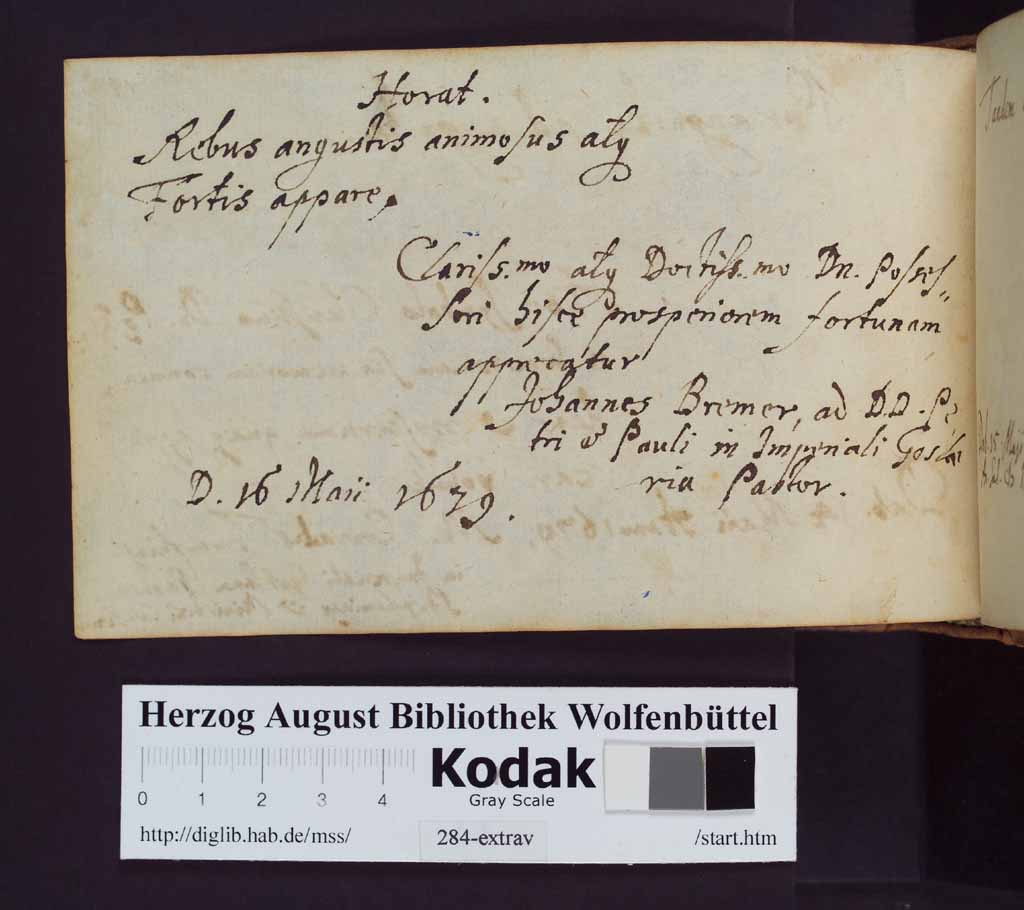 Horat.
Rebus angustis animosus atq
Fortis appare,
Clariss.mo atq Doctiss.mo Dn. Posses„
sori hisce prosperiorem fortunam
apprecatur
Johannes Bremer, ad D.D. Pe„
tri & Pauli in Imperiali Gosla„
ria Pastor.
D. 16 Maii 1679.
Herzog August Bibliothek Wolfenbüttel
0 1 2 3 4
Kodak
Gray Scale
http://diglib.hab.de/mss/ 284-extrav /start.htm